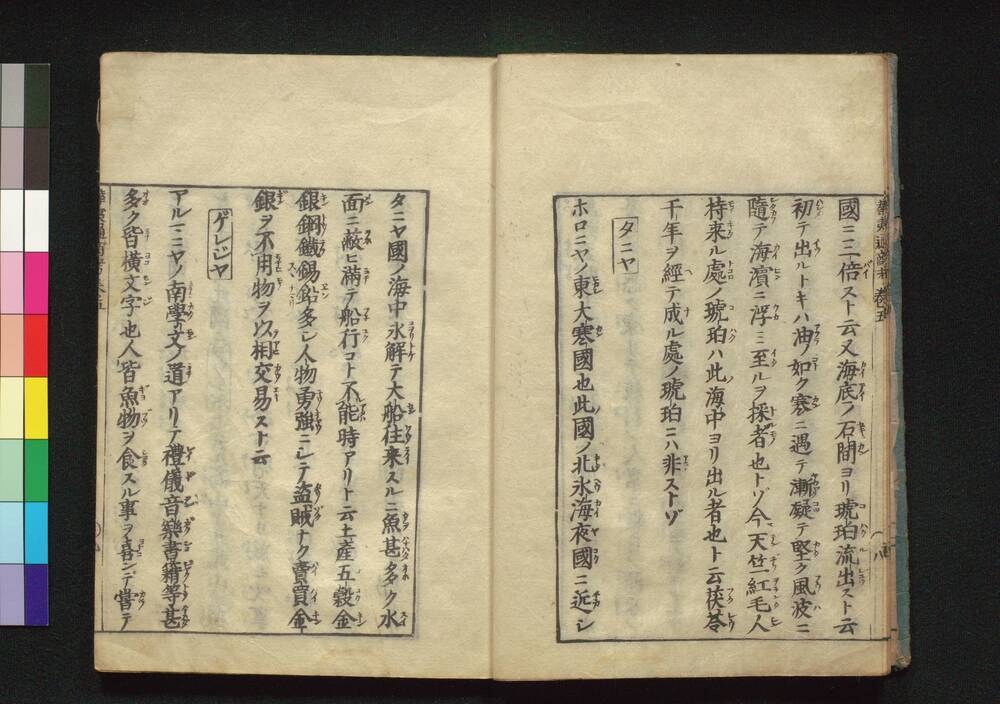 國ニ三倍スト云又海底ノ石間ヨリ琥珀流出スト云
初テ出ルトキハ油ノ如ク寒ニ遇テ漸凝テ堅ク風波ニ
隨テ海濵ニ浮ミ至ルヲ採者也トゾ今天竺紅毛人
持来ル處ノ琥珀ハ此海中ヨリ出ル者也ト云茯苓
千年ヲ經テ成ル處ノ琥珀ニハ非ストゾ
タニヤ
ホロニヤノ東大寒國也此國ノ北氷海夜國ニ近シ
タニヤ國ノ海中氷解テ大船往来スルニ魚甚多ク水
面ニ蔽ヒ滿テ船行コト不能時アリト云土産五穀金
銀銅鐵錫鉛多シ人物勇強ニシテ盗賊ナク賣買金
銀ヲ不用物ヲ以相交易スト云
ゲレシヤ
アルマニヤノ南學文ノ道アリテ禮儀音樂書籍等甚
多ク皆横文字也人皆魚物ヲ食スル事ヲ喜ンテ嘗テ